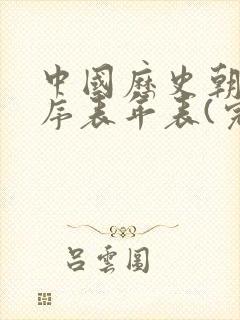 中國歷史朝
序表年表(完
吕雲圓